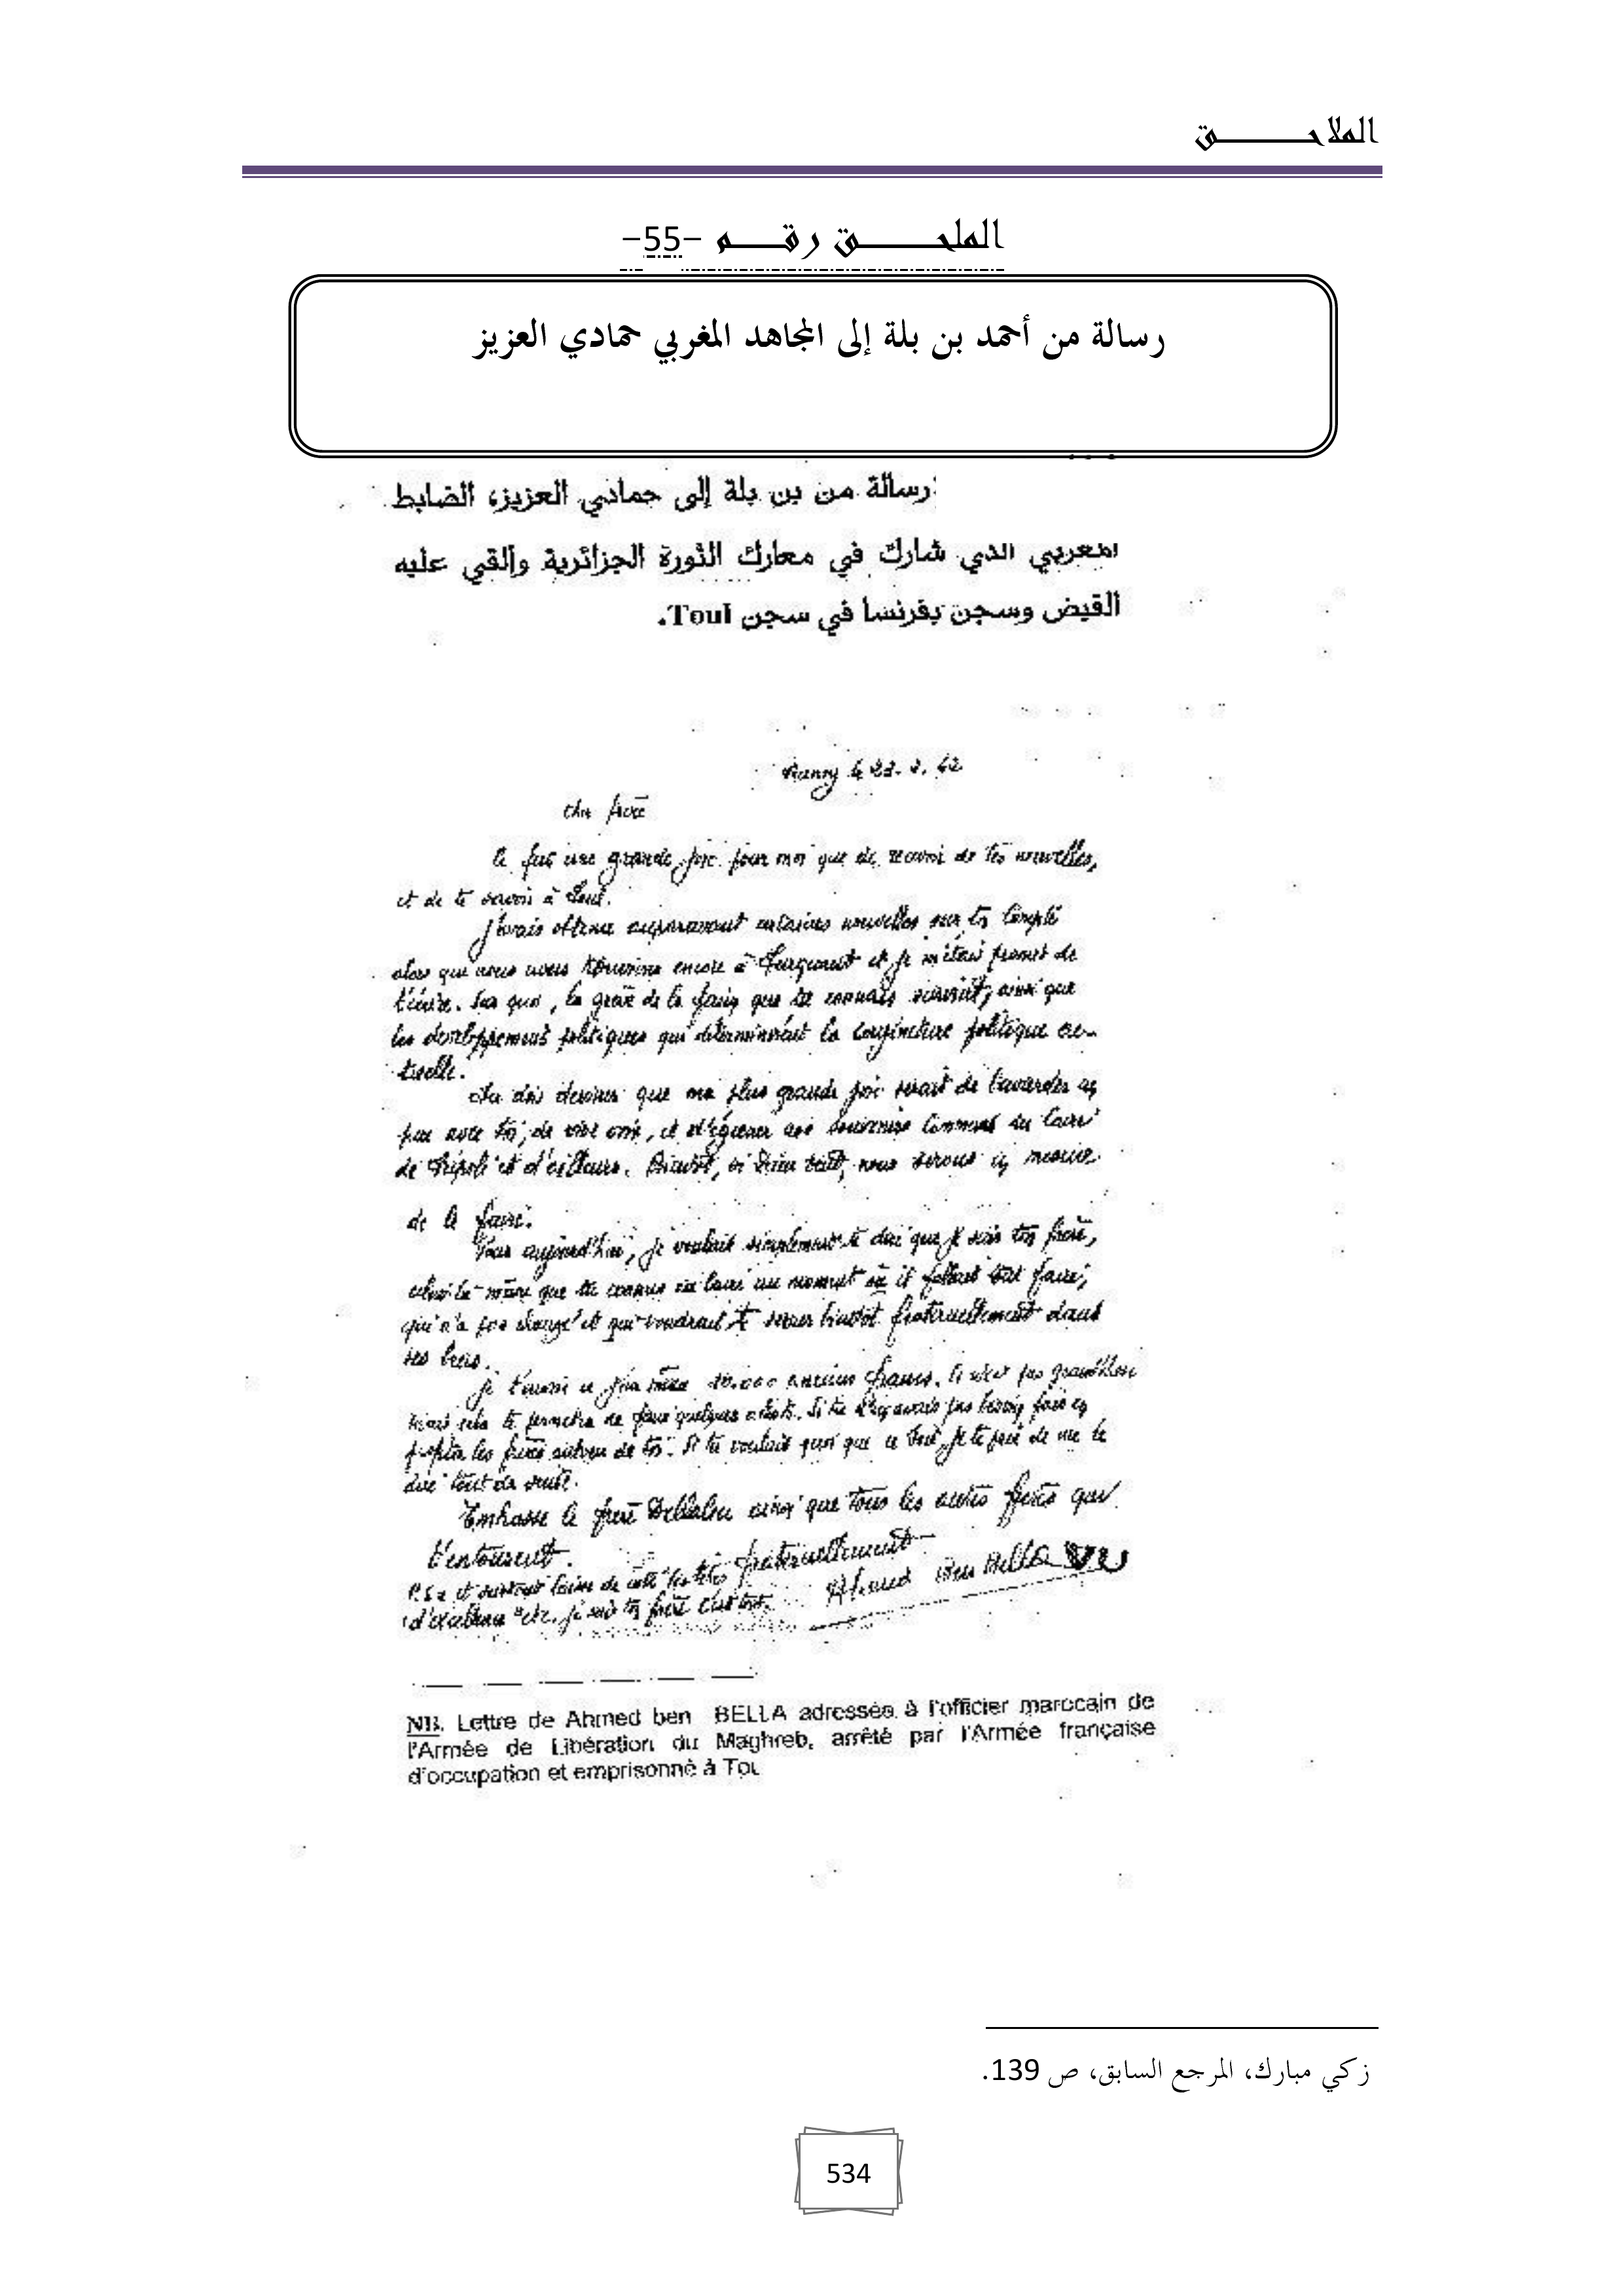 الملاحـــــــق
الملحـــــــق رقـــــم –55–
رسالة من أحمد بن بلة إلى المجاهد المغربي حمادي العزيز
رسالة من بن بلة إلى حمادي العزيز، الضابط
المغربي الذي شارك في معارك الثورة الجزائرية وألقي عليه
القبض وسجن بفرنسا في سجن Toul.
Cher frère
Ce fut une grande joie pour moi que de recevoir de tes nouvelles,
et de te savoir à Toul.
J'avais obtenu auparavant certaines nouvelles sur ton compte
alors que nous nous trouvions encore à Turquant et je m'étais promis de
t'écrire. Sur quoi, la grève de la faim que tu connais survint, ainsi que
les développements politiques qui déterminèrent la conjoncture politique ac-
tuelle.
Tu dois deviner que ma plus grande joie serait de bavarder un
peu avec toi, de vive voix, et d'égrener nos souvenirs communs du Caire
de Tripoli et d'ailleurs. Bientôt, si Dieu veut, nous serons en mesure
de le faire.
Pour aujourd'hui, je voulais simplement te dire que je suis ton frère,
celui-là même que tu connus au Caire au moment où il fallait tout faire,
qui n'a pas changé et qui voudrait te serrer bientôt fraternellement dans
ses bras.
Je t'envoie ce jour même 10.000 anciens francs. Ce n'est pas grand'chose
mais cela te permettra de faire quelques achats. Si tu n'en avais pas besoin fais en
profiter les frères autour de toi. Si tu voulais quoi que ce soit, je te prie de me le
dire tout de suite.
Embrasse le frère ainsi que tous les autres frères qui
t'entourent.
fraternellement
Ahmed Ben Bella
P.S. et surtout laisse de côté les titres
d'excellence etc. je suis ton frère c'est tout.
NB. Lettre de Ahmed ben BELLA adressée à l'officier marocain de
l'Armée de Libération du Maghreb, arrêté par l'Armée française
d'occupation et emprisonné à Toul
زكي مبارك، المرجع السابق، ص 139.
534